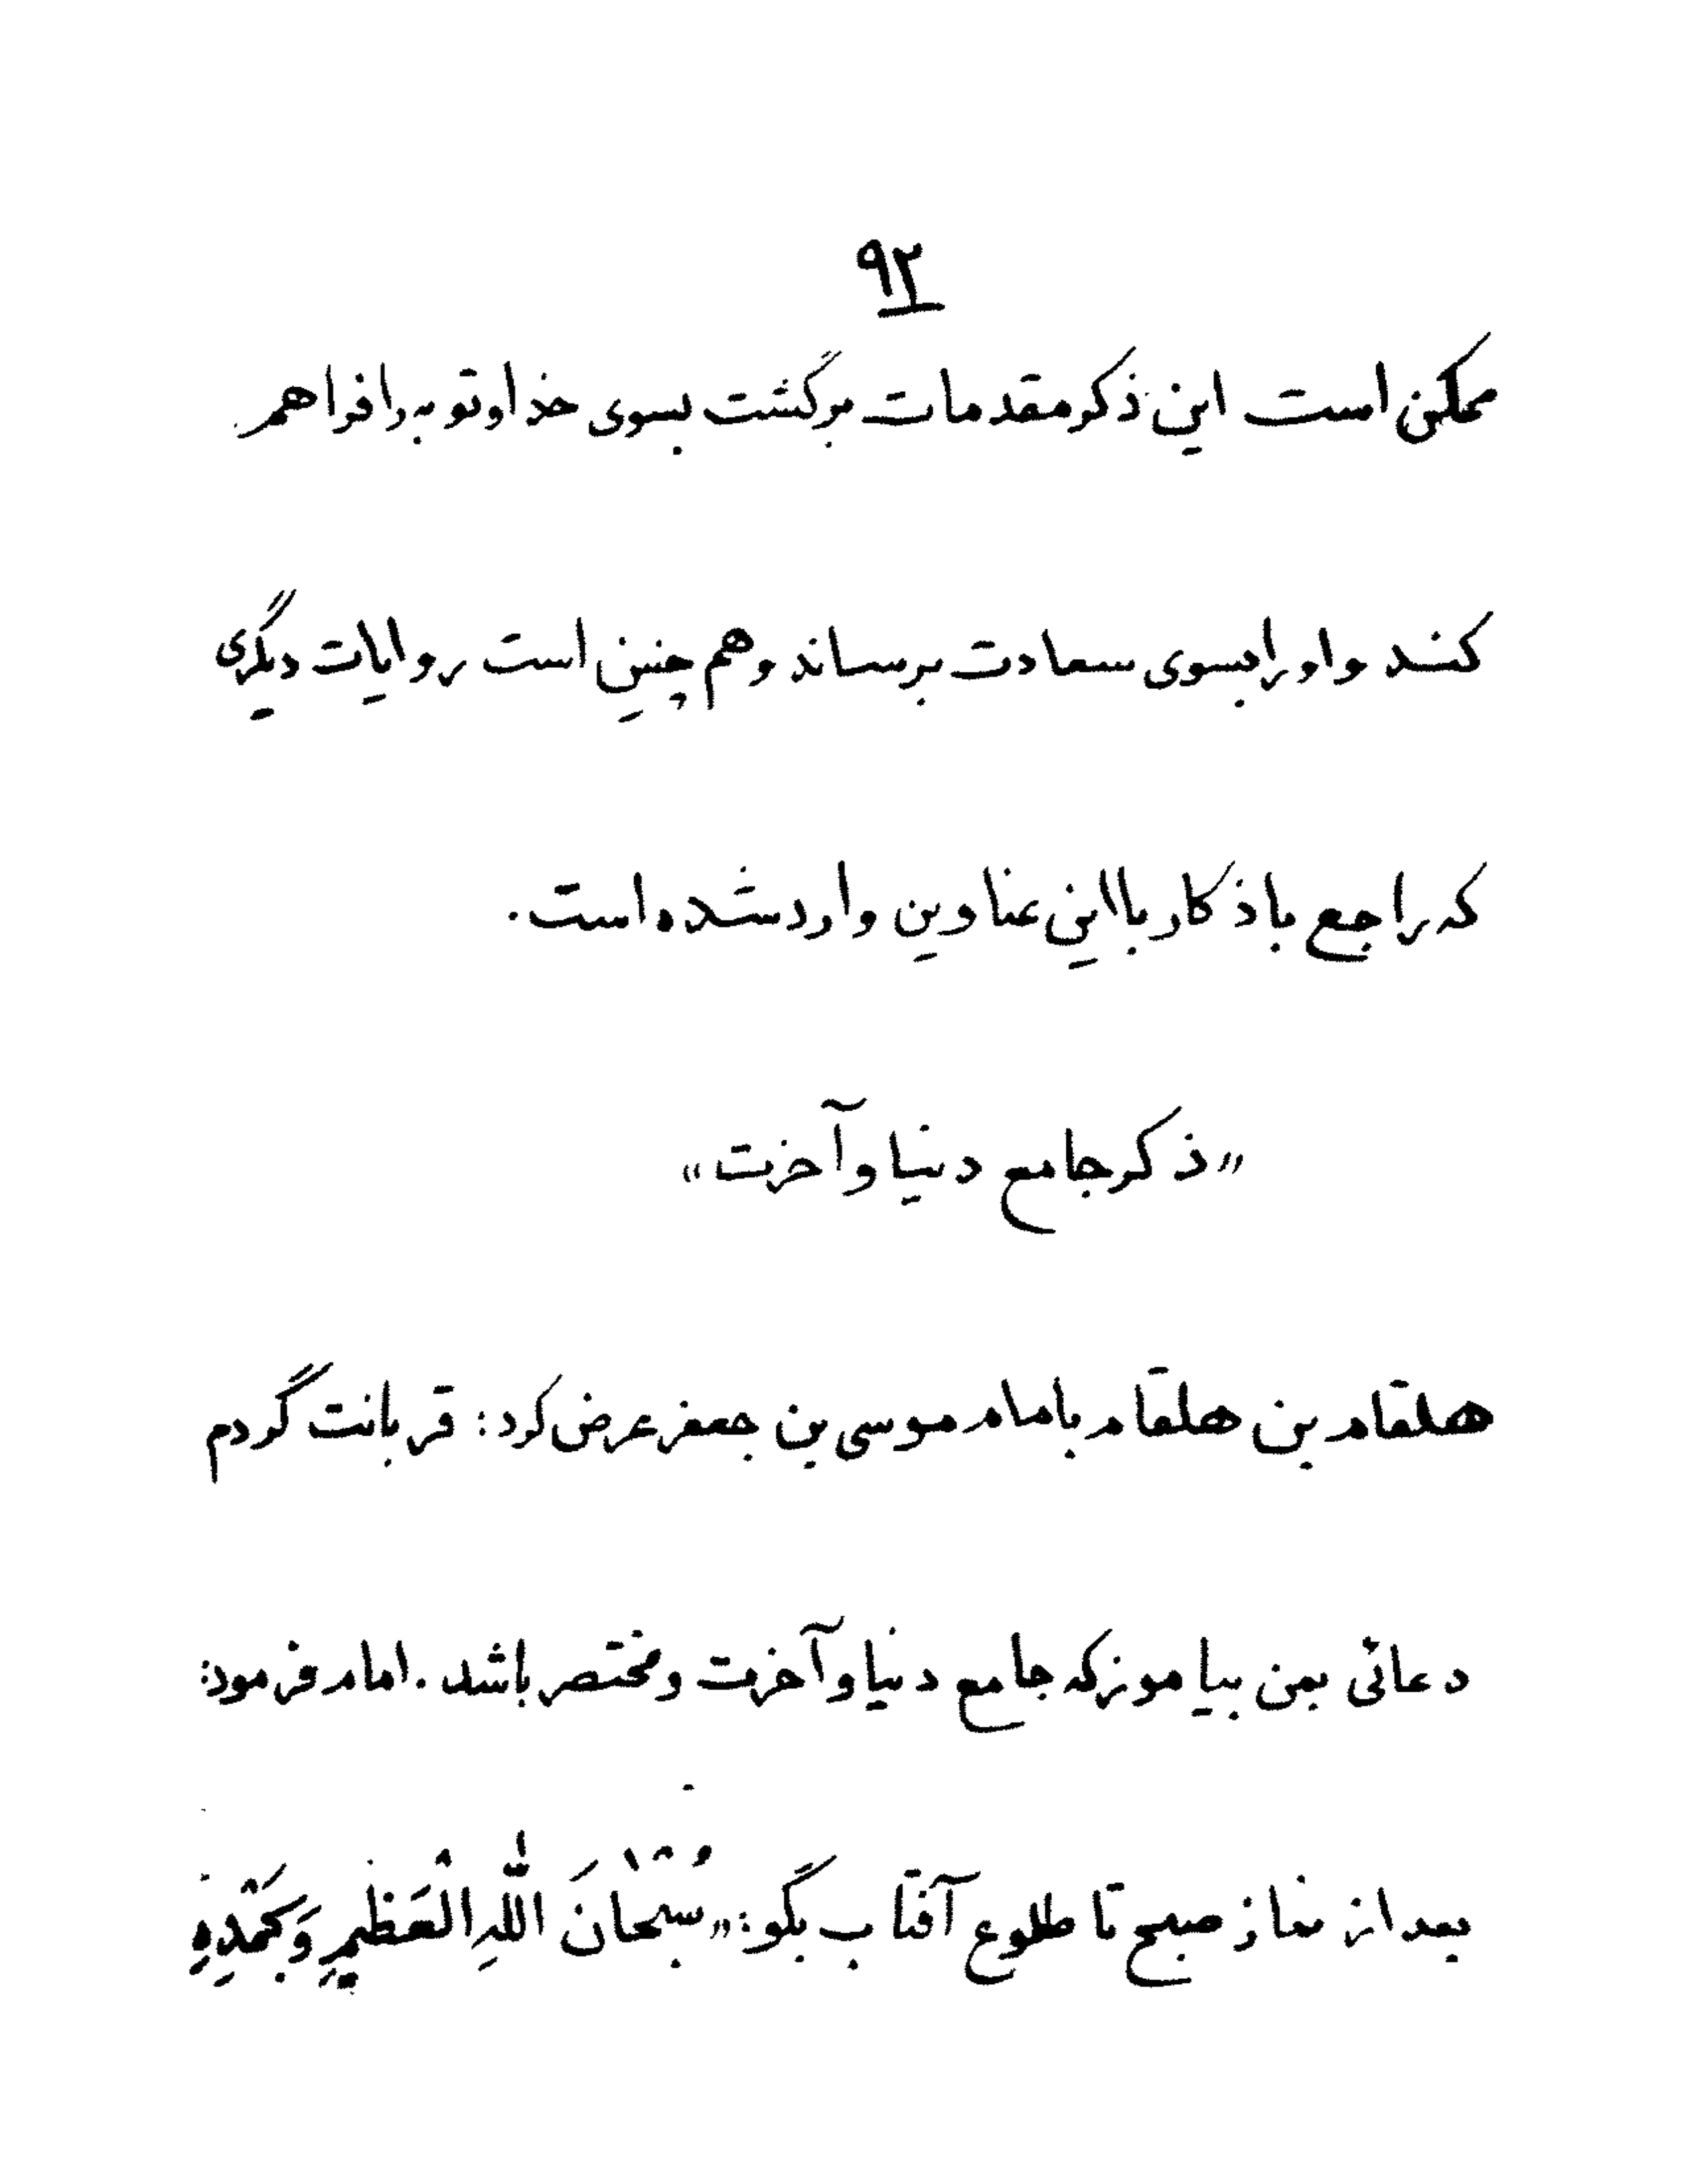 ۹۲
ممکن است این ذکر مقدمات برگشت بسوی خدا و توبه را فراهم
کند و او را بسوی سعادت برساند و هم چنین است روایات دیگری
که راجع باذکار با این عناوین وارد شده است.
«ذکر جامع دنیا و آخرت»
هلقام بن هلقام بامام موسی بن جعفر عرض کرد: قربانت گردم
دعائی بمن بیاموز که جامع دنیا و آخرت و مختصر باشد. امام فرمود:
بعد از نماز صبح تا طلوع آفتاب بگو: «سُبْحانَ اللّٰهِ الْعَظیمِ وَبِحَمْدِهِ